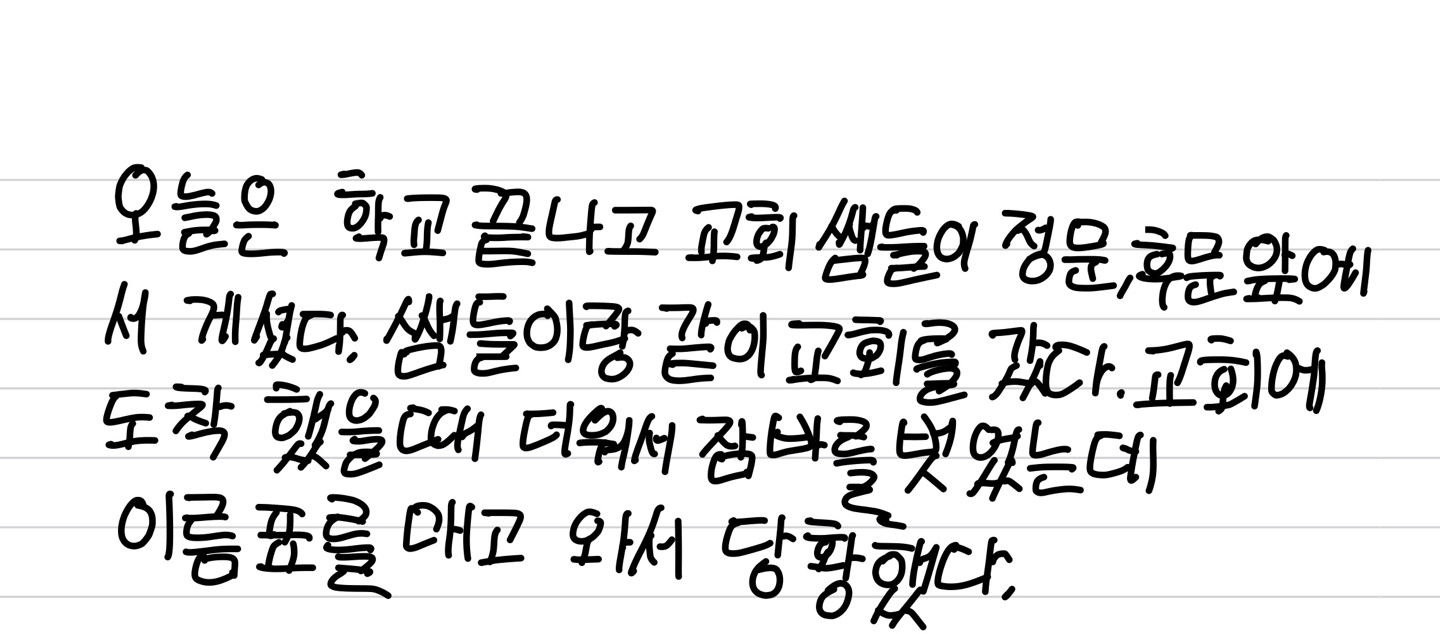 오늘은 학교 끝나고 교회 쌤들이 정문,후문 앞에
서 게셨다. 쌤들이랑 같이 교회를 갔다. 교회에
도착 했을때 더워서 잠바를 벗었는데
이름표를 매고 와서 당황했다.